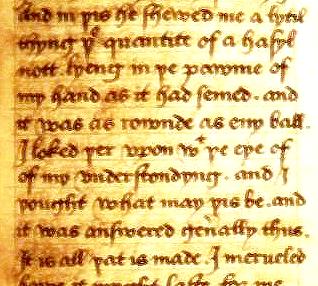 And in þis he shewed me a lytil
thyng þe quantite of a hasyl
nott. lyeng in þe pawme of
my hand as it had semed. and
it was as rownde as eny ball.
I loked þer vpon wt þe eye of
of my vnderstondyng. and I
þought what may þis be. and
it was answered gen̄ally thus.
It is all þat is made. I merueled
howe it myght laste. for me